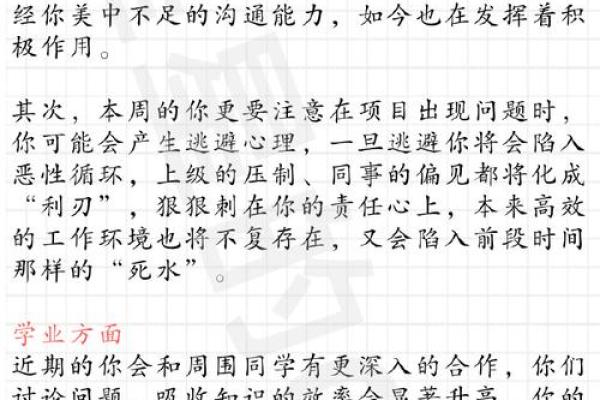 经你美中不足的沟通能力，如今也在发挥着积
极作用。
其次，本周的你更要注意在项目出现问题时，
你可能会产生逃避心理，一旦逃避你将会陷入
恶性循环，上级的压制、同事的偏见都将化成
“利刃”，狠狠刺在你的责任心上，本来高效
的工作环境也将不复存在，又会陷入前段时间
那样的“死水”。
学业方面
近期的你会和周围同学有更深入的合作，你们
讨论问题、吸收知识的效率会显著升高，你的